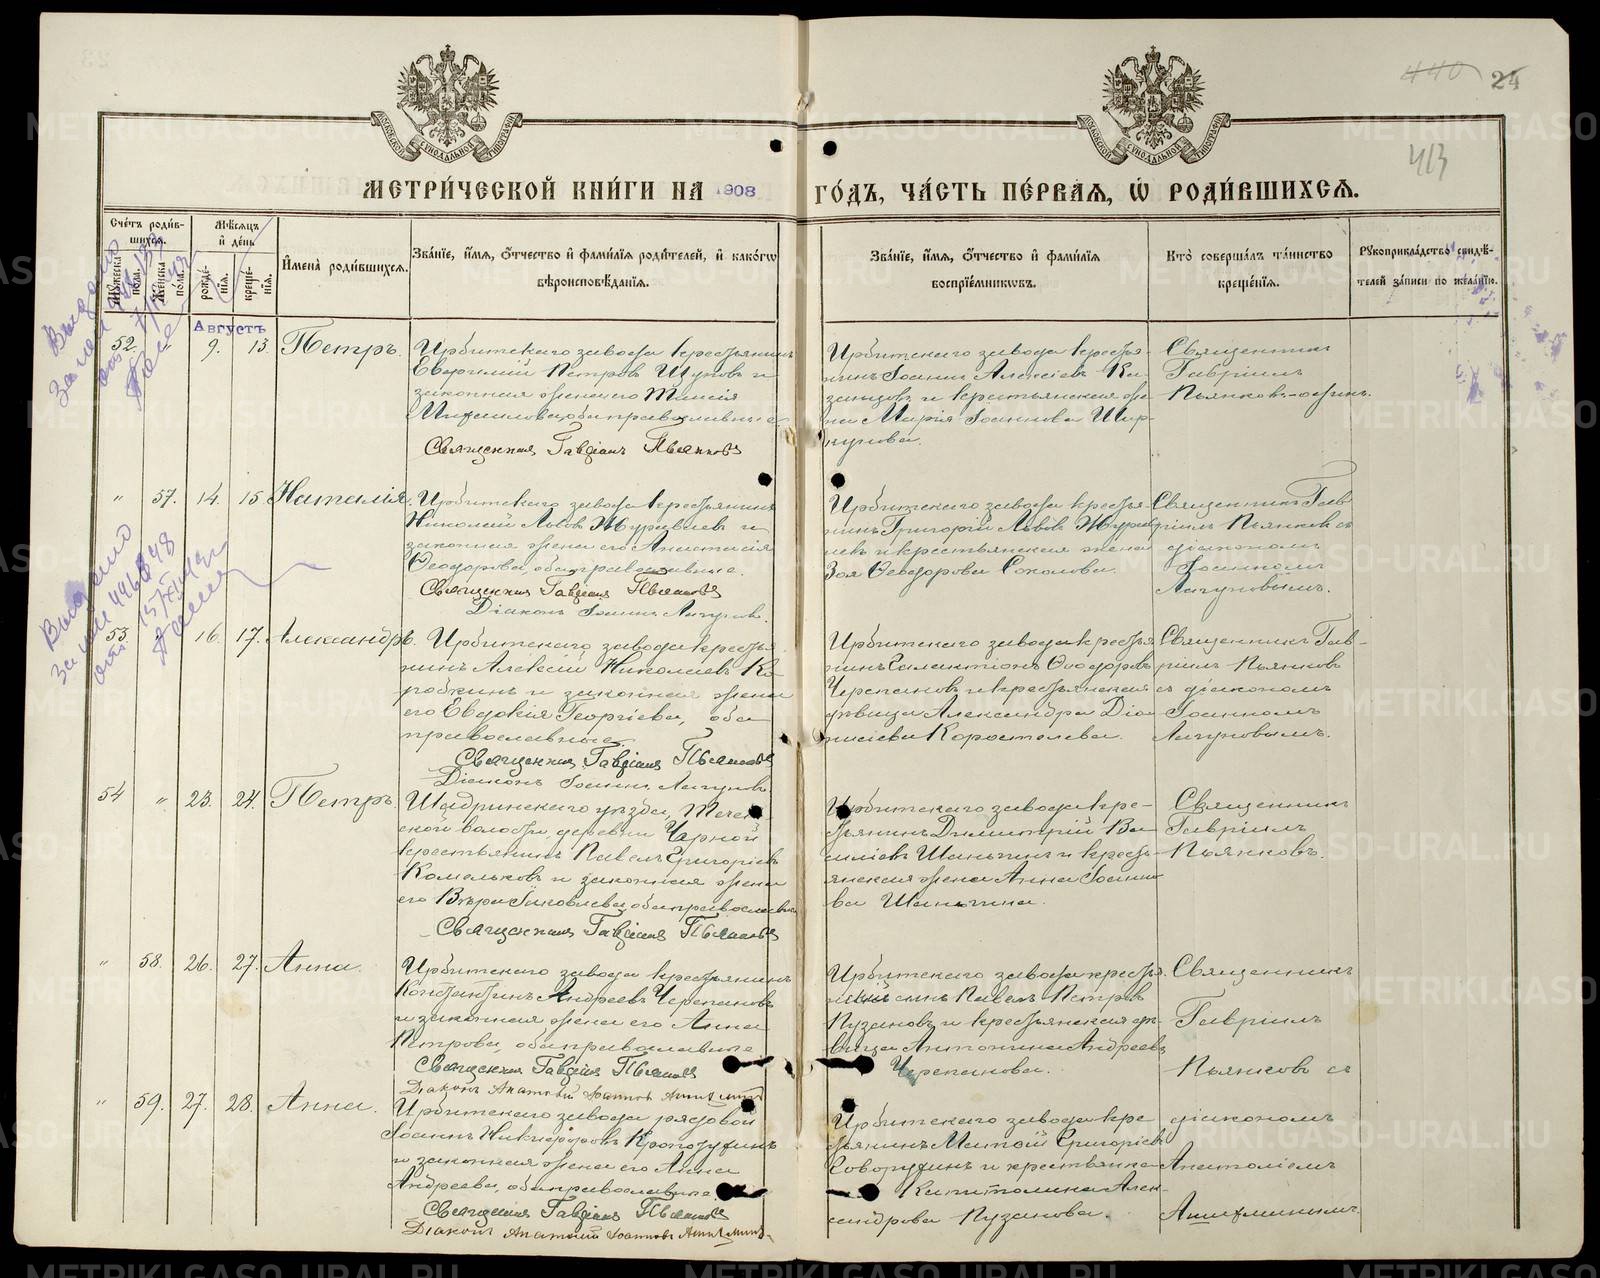 440 24
413
МОСКОВСКОЙ СѴНОДАЛЬНОЙ ТИПОГРАФІИ
МОСКОВСКОЙ СѴНОДАЛЬНОЙ ТИПОГРАФІИ
МЕТРИ́ЧЕСКОЙ КНИ́ГИ НА 1908 ГО́ДЪ, ЧА́СТЬ ПЕ́РВАѦ, Ѡ҆ РОДИ́ВШИХСѦ.
Сче́тъ роди́в-
шихсѧ.
Мꙋ́жеска по́ла.
Же́нска по́ла.
Мѣ́сѧцъ
и҆ де́нь
рожде́-
нїѧ.
креще́-
нїѧ.
И҆мена̀ роди́вшихсѧ.
Зва́нїе, и҆́мѧ, ѻ҆́тчество и҆ фамѝлїѧ роди́телей, и҆ како́гѡ
вѣроисповѣ́данїѧ.
Зва́нїе, и҆́мѧ, ѻ҆́тчество и҆ фамѝлїѧ
воспрїе́мникѡвъ.
Кто̀ соверша́лъ та́инство
креще́нїѧ.
Рꙋкоприкла́дство свидѣ́-
телей за́писи по жела́нїю.
Августъ
52. " 9. 13. Петръ.
Ирбитскаго завода крестьянинъ
Петров и
законная жена его Таисія
оба православные
Священник Гавріил Пьянковъ
Ирбитскаго завода крестья-
нинъ Іоаннъ Алексіевъ Ка-
занцовъ и крестьянская же-
на Марія Іоаннова Шир-
шунова.
Священникъ
Гавріилъ
Пьянковъ
" 57. 14. 15. Наталія.
Ирбитскаго завода крестьянинъ
Николай Львов Журавлев и
законная жена его Анастасія
Ѳеодорова, оба православные.
Священник Гавріил Пьянковъ
Діаконъ Іоаннъ Лагуновъ.
Ирбитскаго завода крестья-
нинъ Григорій Львов Журав-
лев и крестьянская жена
Зоя Ѳеодорова Соколова.
Священникъ Гав-
ріилъ Пьянков съ
діакономъ
Іоанномъ
Лагуновымъ.
53. " 16. 17. Александръ.
Ирбитскаго завода крестья-
нинъ Алексій Николаевъ Ко-
робкинъ и законная жена
его Евдокія Георгіева, оба
православные.
Священник Гавріил Пьянковъ
Діаконъ Іоаннъ Лагуновъ.
Ирбитскаго завода крестья-
нинъ Галактіонъ Ѳеодоровъ
Черепановъ и крестьянская
дѣвица Александра Діо-
нисіева Коростелева.
Священникъ Гав-
ріилъ Пьянковъ
съ діакономъ
Іоанномъ
Лагуновымъ.
54 " 23. 24. Петръ.
Шадринскаго уѣзда, Течен-
ской волости, деревни Черной
крестьянинъ Павелъ Григоріевъ
Комельковъ и законная жена
его Вѣра Яковлева, оба православные
Священник Гавріил Пьянковъ
Ирбитскаго завода кре-
стьянинъ Димитрій Ва-
силіевъ Шаньгинъ и кресть-
янская жена Анна Іоанно-
ва Шаньгина.
Священникъ
Гавріилъ
Пьянковъ.
" 58. 26. 27. Анна.
Ирбитскаго завода крестьянинъ
Константинъ Андреевъ Черепановъ
и законная жена его Анна
Петрова, оба православные
Священник Гавріил Пьянковъ
Діаконъ Анатолій Іоаннов
Ирбитскаго завода крестья-
сынъ Павелъ Петров
Пузановъ и крестьянская дѣ-
вица Антонина Андреева
Черепанова.
Священникъ
Гавріилъ
Пьянков съ
" 59. 27. 28. Анна.
Ирбитскаго завода рядовой
Іоаннъ Никифоровъ Кропотухинъ
и законная жена его Анна
Андреева, оба православные
Священник Гавріил Пьянковъ
Діаконъ Анатолій Іоаннов
Ирбитскаго завода кре-
стьянинъ Матѳій Григоріев
Говорухинъ и крестьянка
Капитолина Алек-
сандрова Пузанова.
діакономъ
Анатоліемъ
Выдано
Выдано
METRIKI.GASO-URAL.RU